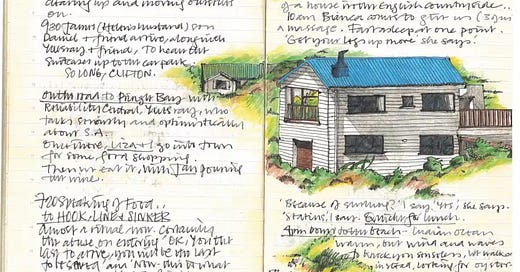 clearing up and moving ourselves
on.
9:30 James (Helen's husband) Don
Daniel + friend arrive, along with
+ friend, to hear the
suitcases up to the car park.
SO LONG, CLIFTON.
South road to Pringle Bay with
Reliability Central, who
talks smartly and optimistically
about S.A.
Once there, Liza + I go into town
for some food shopping.
Then we eat it, with Jan pouring
the wine.
Speaking of Food..
to HOOK, LINE & SINKER
almost a ritual now. Certainly
the abuse on entering 'OK, You the
last to arrive, you will be the last
to and 'Now, this is what
of a house in the English countryside..
10am Bianca comes to give us
a massage. Fast asleep at one point.
'Got your legs up more she says.
'Because of surfing?' I say. 'Yes', she says.
'Statins,' I say. for lunch.
4pm down beach. Indian Ocean
warm, but wind and waves
to knock you sideways, we walk
instead, looking for oyster